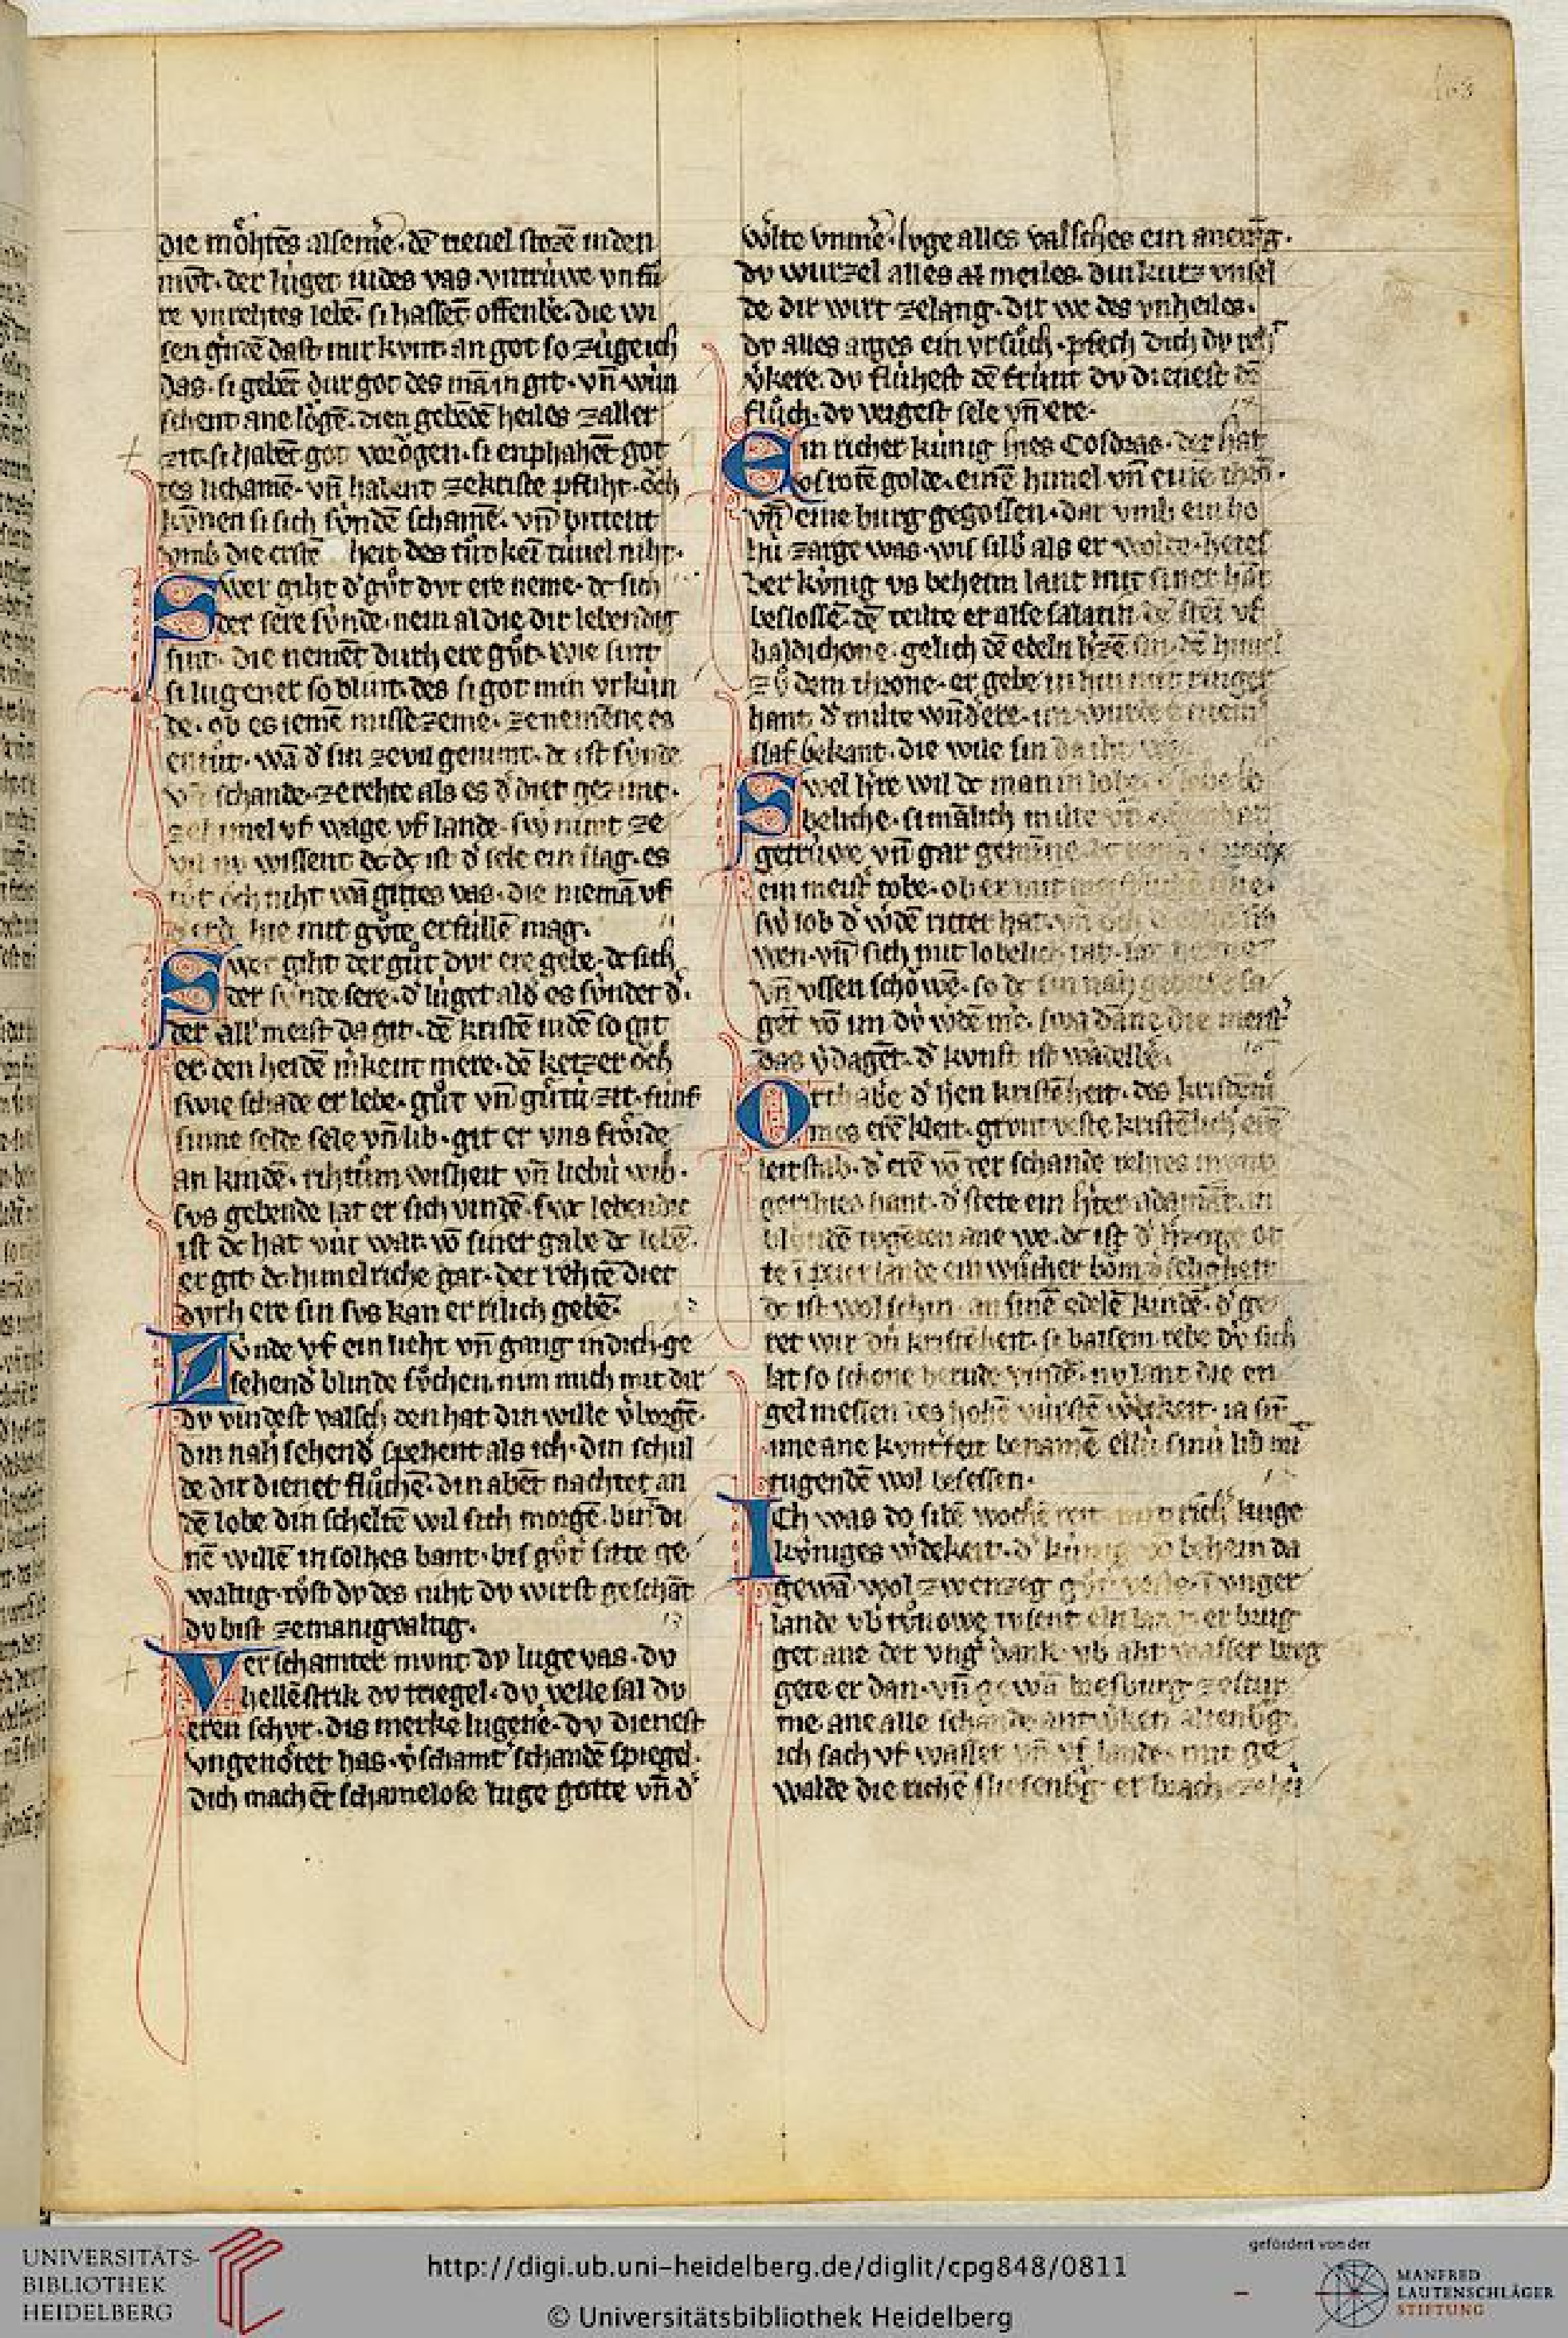 403
die möhtēs alsemē. dē tieuel stozē in den
mv̄t. der lúget indes vas. vntrúwe vn̄ fú
re vnrehtes lebē. si hassēt offenbē. die wi
sen
das. si gebēt dur got des mā in git. vn̄ wún
schent ane lögē. dien gebēdē heiles zaller
zit. si habēt got vor ögen. si enphahēt got
tes lichamē. vn̄ habent ze kriste pfliht. öch
kv́nnen si sich súndē schamē. vn̄ bittent
vmb die erstē heit des tůt kei tiuuel niht.
Swer giht d' gůt dvr ere neme. dc sich
der sere súnde. nein al die dir lebendig
sint. die nemēt durh ere gůt. wie sint
si lugener so blint. des si got min vrkún
de. ob es iemē missezeme. ze nemēne es
entůt. wā d' sin ze vil genimt. dc ist súnde
vn̄ schande. ze rehte als es d' diet gezimt.
ze himel vf wage vf lande. sw' nimt ze
vil nv wissent dc dc ist d' sele ein slag. es
tůt öch niht wā gittes vas. die niemā vf
erde hie mit gůte erfúllē mag.
Swer giht der gůt dvr ere gebe. dc sich
der súnde sere. d' lúget ald es súndet d'.
der all' meist da git. dē kristē indē so git
er. den heidē in kent mere. dē ketzer öch
swie schade er lebe. gůt vn̄ gůtú zit. fúnf
sinne selde sele vn̄ lib. git er vns fröide
an kindē. rihtům wisheit vn̄ liebú wib.
svs gebende lat er sich vindē. swc lebendic
ist dc hat vúr war. vō siner gabe dc lebē.
er git dc himelriche gar. der rehtē diet
dvrh ere sin svs kan er rilich gebē.
Zúnde vf ein lieht vn̄ gang in dich. ge
sehend' blinde sůchen. nim mich mit dir
dv vindest valsch den hat din wille v'borgē.
din nah sehend' spehent als ich. din schul
de dir dienet flůchē. din abēt nachtet an
dē lobe din scheltē wil sich morgē. bint di
nē willē in solhes bant. bis gůt sitte ge
waltig. tůst dv des niht dv wirst geschāt
dv bist ze manigvaltig.
Verschamter mvnt dv luge vas. dv
hellē strik dv triegel. dv velle sal dv
eren schvr. dis merke lugene. dv dienest
vngenötet has. v'schamt' schandē spiegel.
dich machēt schamelose luge gotte vn̄ d'
wölte vnmē'. lvge alles valsches ein aneuāg.
dv wurzel alles al meiles. din kurz vnsel
de dir wirt ze lang. dir we des vnheiles.
dv alles arges ein vrsůch. pfech dich dv reh
v'kere. dv flúhest dē frúnt dv dienest dē
flůch. dv vergest sele vn̄ ere.
Ein richer kúnig hies Cosdras. der hat
vos rotē golde. einē himel vn̄ eine thrō.
vn̄ eine burg gegossen. dar vmb ein ho
hú zarge was. wis silb' als er wolde. hetes
der kúnig vs behein lant mit siner hāt
beslossē. dē teilte er alse salatin. dē stēt vf
baldichone. gelich dē edeln h'zē sin. dē himel
zů dem throne. er gebe in hin mit ringer
hant d' milte wnd'ere. im wurde
slaf bekant. die wile sin da iht
Swel h're wil dc man in lobe. d' lebe lo
beliche. si mālich milte vn̄
getrúwe vn̄ gar gemeine
ein meist' tobe. ob er mit
sw' lob d' w'dē ritter hat. vn̄
wen. vn̄ sich mit lobelich
vn̄ vssen schöwē. so dc sin nah gebure sa
gēt vō im dv w'dē me. swa dāne die meist'
das v'dagēt. d' kvnst ist wādelbe.
Orthabe d' hen kristēheit. des kristēm
mes erē kleit. grvnt veste kristēlich' ere
leitstab. d' erē vō der schande
gerehtes hant. d' stete ein h'ter adamāt. in
blúndē tugenden ane we. dc ist d' h'zoge ot
te ī beier lande ein wůcher bom d' selighеit
dc ist wol schin. an sinē edelē kindē. d' ge
ret wir dú kristēheit. si balsem rebe dv sich
lat so schone bernde vindē. nv lant die en
gel messen des hohē vúrstē w'dekeit. ia sīt
ime ane kvnterfeit benamē ellú sinú lid' mit
tugendē wol besessen.
Ich was do sibē wochē reit
kúniges w'dekeit. d' kúnig vō behein da
gewā wol zwenzeg gůte veste. ī vnger
lande. vb' tůnowe tvsent er brug
get ane der vng' dank. vb' aht wasser brug
gete er dan. vn̄ gewā bresburg ze stur
me. ane alle schande antw'ken altenb'g.
ich sach vf wasser vn̄ vf lande. mit ge
walde die richē
UNIVERSITÄTS-
BIBLIOTHEK
HEIDELBERG
http://digi.ub.uni-heidelberg.de/diglit/cpg848/0811
© Universitätsbibliothek Heidelberg
gefördert von der
MANFRED
LAUTENSCHLÄGER
STIFTUNG